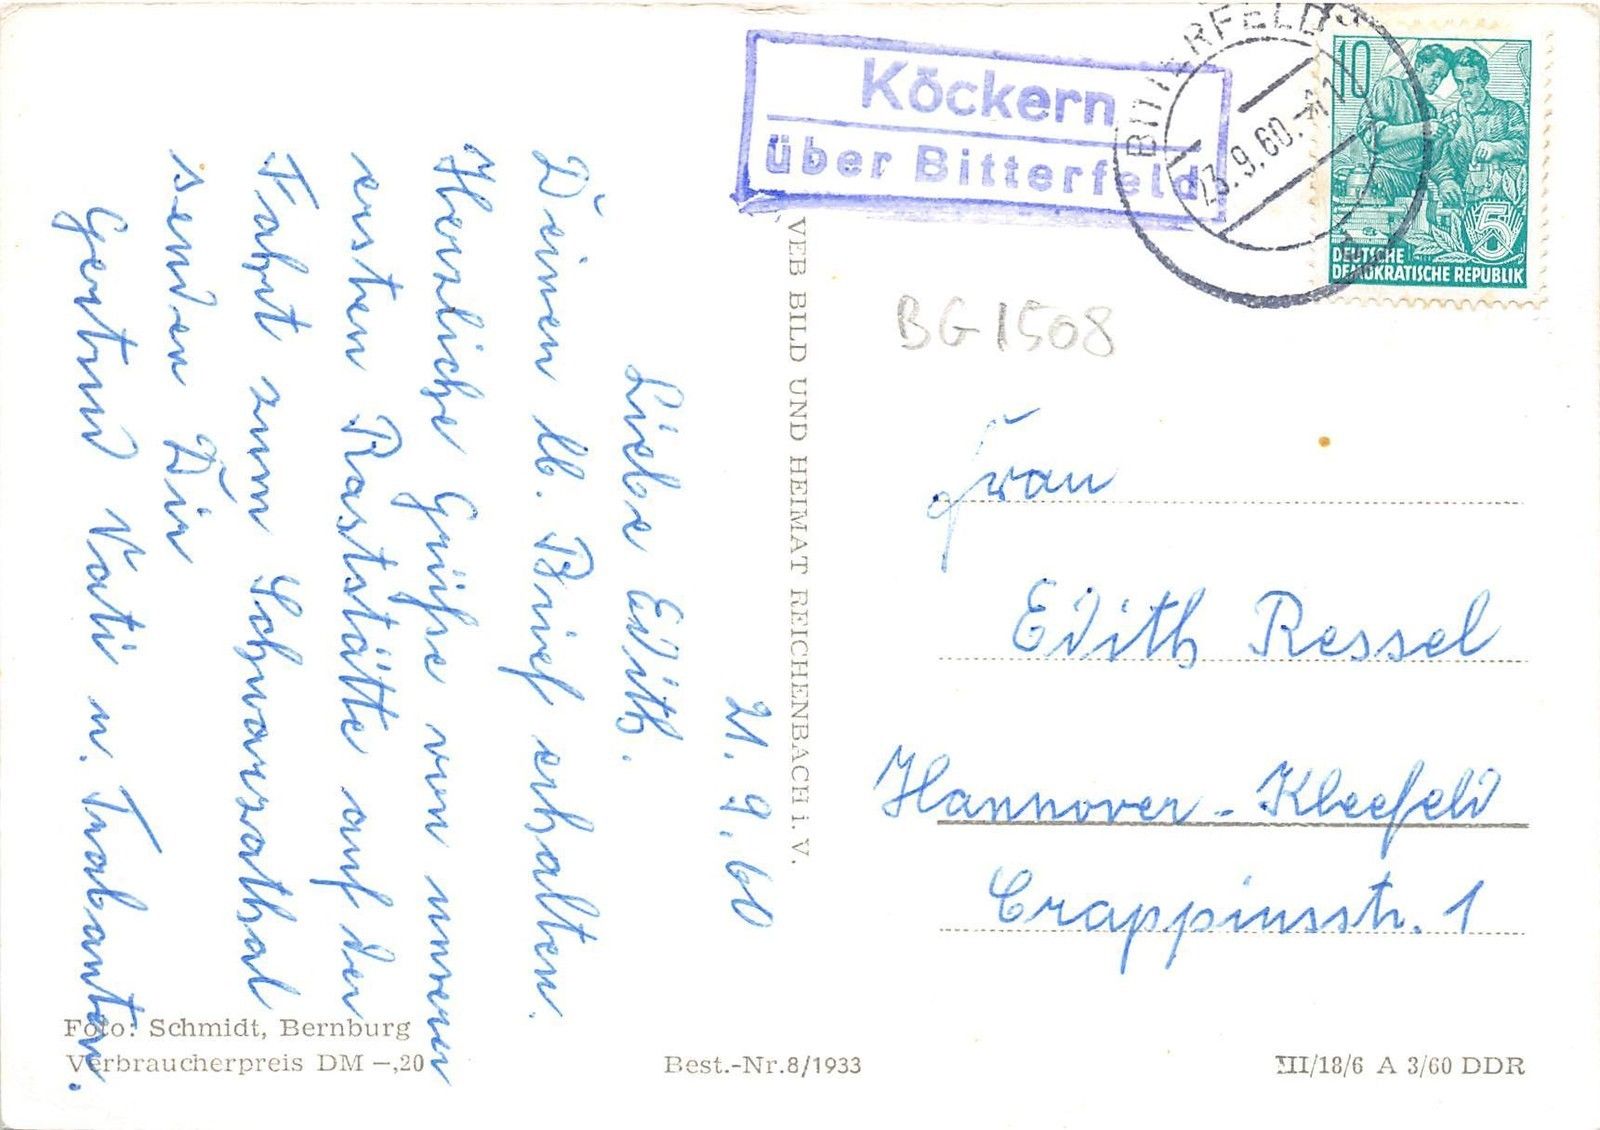 21. 9. 60
Liebe Edith.
Deinen lb. Brief erhalten.
Herzliche Grüße von unserer
ersten Raststätte auf der
Fahrt zum Schwarzathal
senden Dir
Gertrud Vati u. Trabanten.
Köckern
über Bitterfeld
BITTERFELD
23.9.60.
10
DEUTSCHE
DEMOKRATISCHE REPUBLIK
5
BG 1508
VEB BILD UND HEIMAT REICHENBACH i. V.
Frau
Edith Ressel
Hannover-Kleefeld
Crappiusstr. 1
Foto: Schmidt, Bernburg
Verbraucherpreis DM —,20
Best.-Nr. 8/1933
III/18/6 A 3/60 DDR